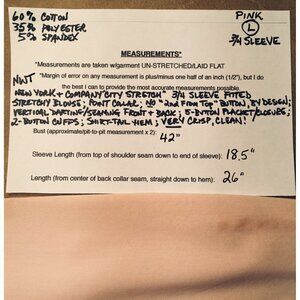 60% COTTON
35% POLYESTER
5% SPANDEX
PINK
L
3/4 SLEEVE
MEASUREMENTS*
*Measurements are taken w/garment UN-STRETCHED/LAID FLAT
*Margin of error on any measurement is plus/minus one half of an inch (1/2"), but I do
the best I can to provide the most accurate measurements possible.
NWT
NEW YORK + COMPANY "CITY STRETCH" 3/4 SLEEVE FITTED
STRETCHY BLOUSE; POINT COLLAR; NO "2nd FROM TOP" BUTTON, BY DESIGN;
VERTICAL DARTING/SEAMING FRONT + BACK; 5-BUTTON PLACKET/CLOSURE;
2-BUTTON CUFFS; SHIRT-TAIL HEM; VERY CRISP, CLEAN!
Bust (approximate/pit-to-pit measurement x 2): 42"
Sleeve Length (from top of shoulder seam down to end of sleeve): 18.5"
Length (from center of back collar seam, straight down to hem): 26"